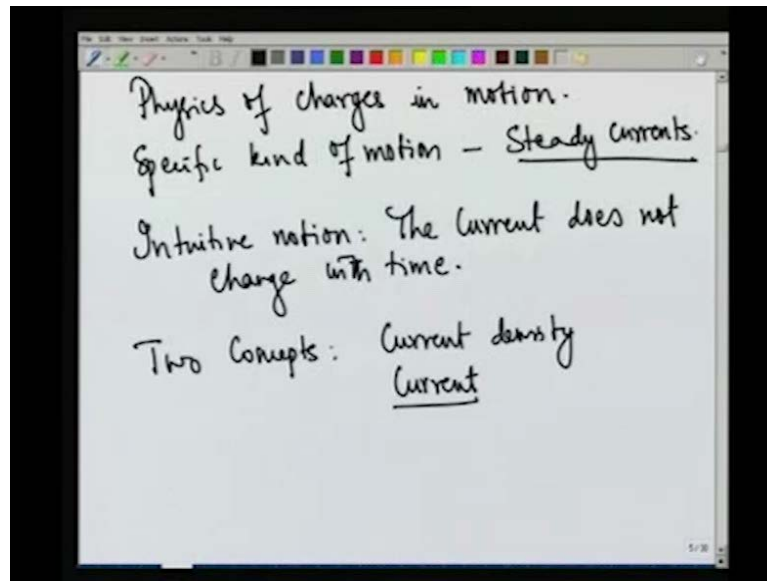 File Edit View Insert Actions Tools Help
Physics of charges in motion.
Specific kind of motion – Steady currents.
Intuitive notion: The Current does not
change with time.
Two Concepts: Current density
Current
5/30